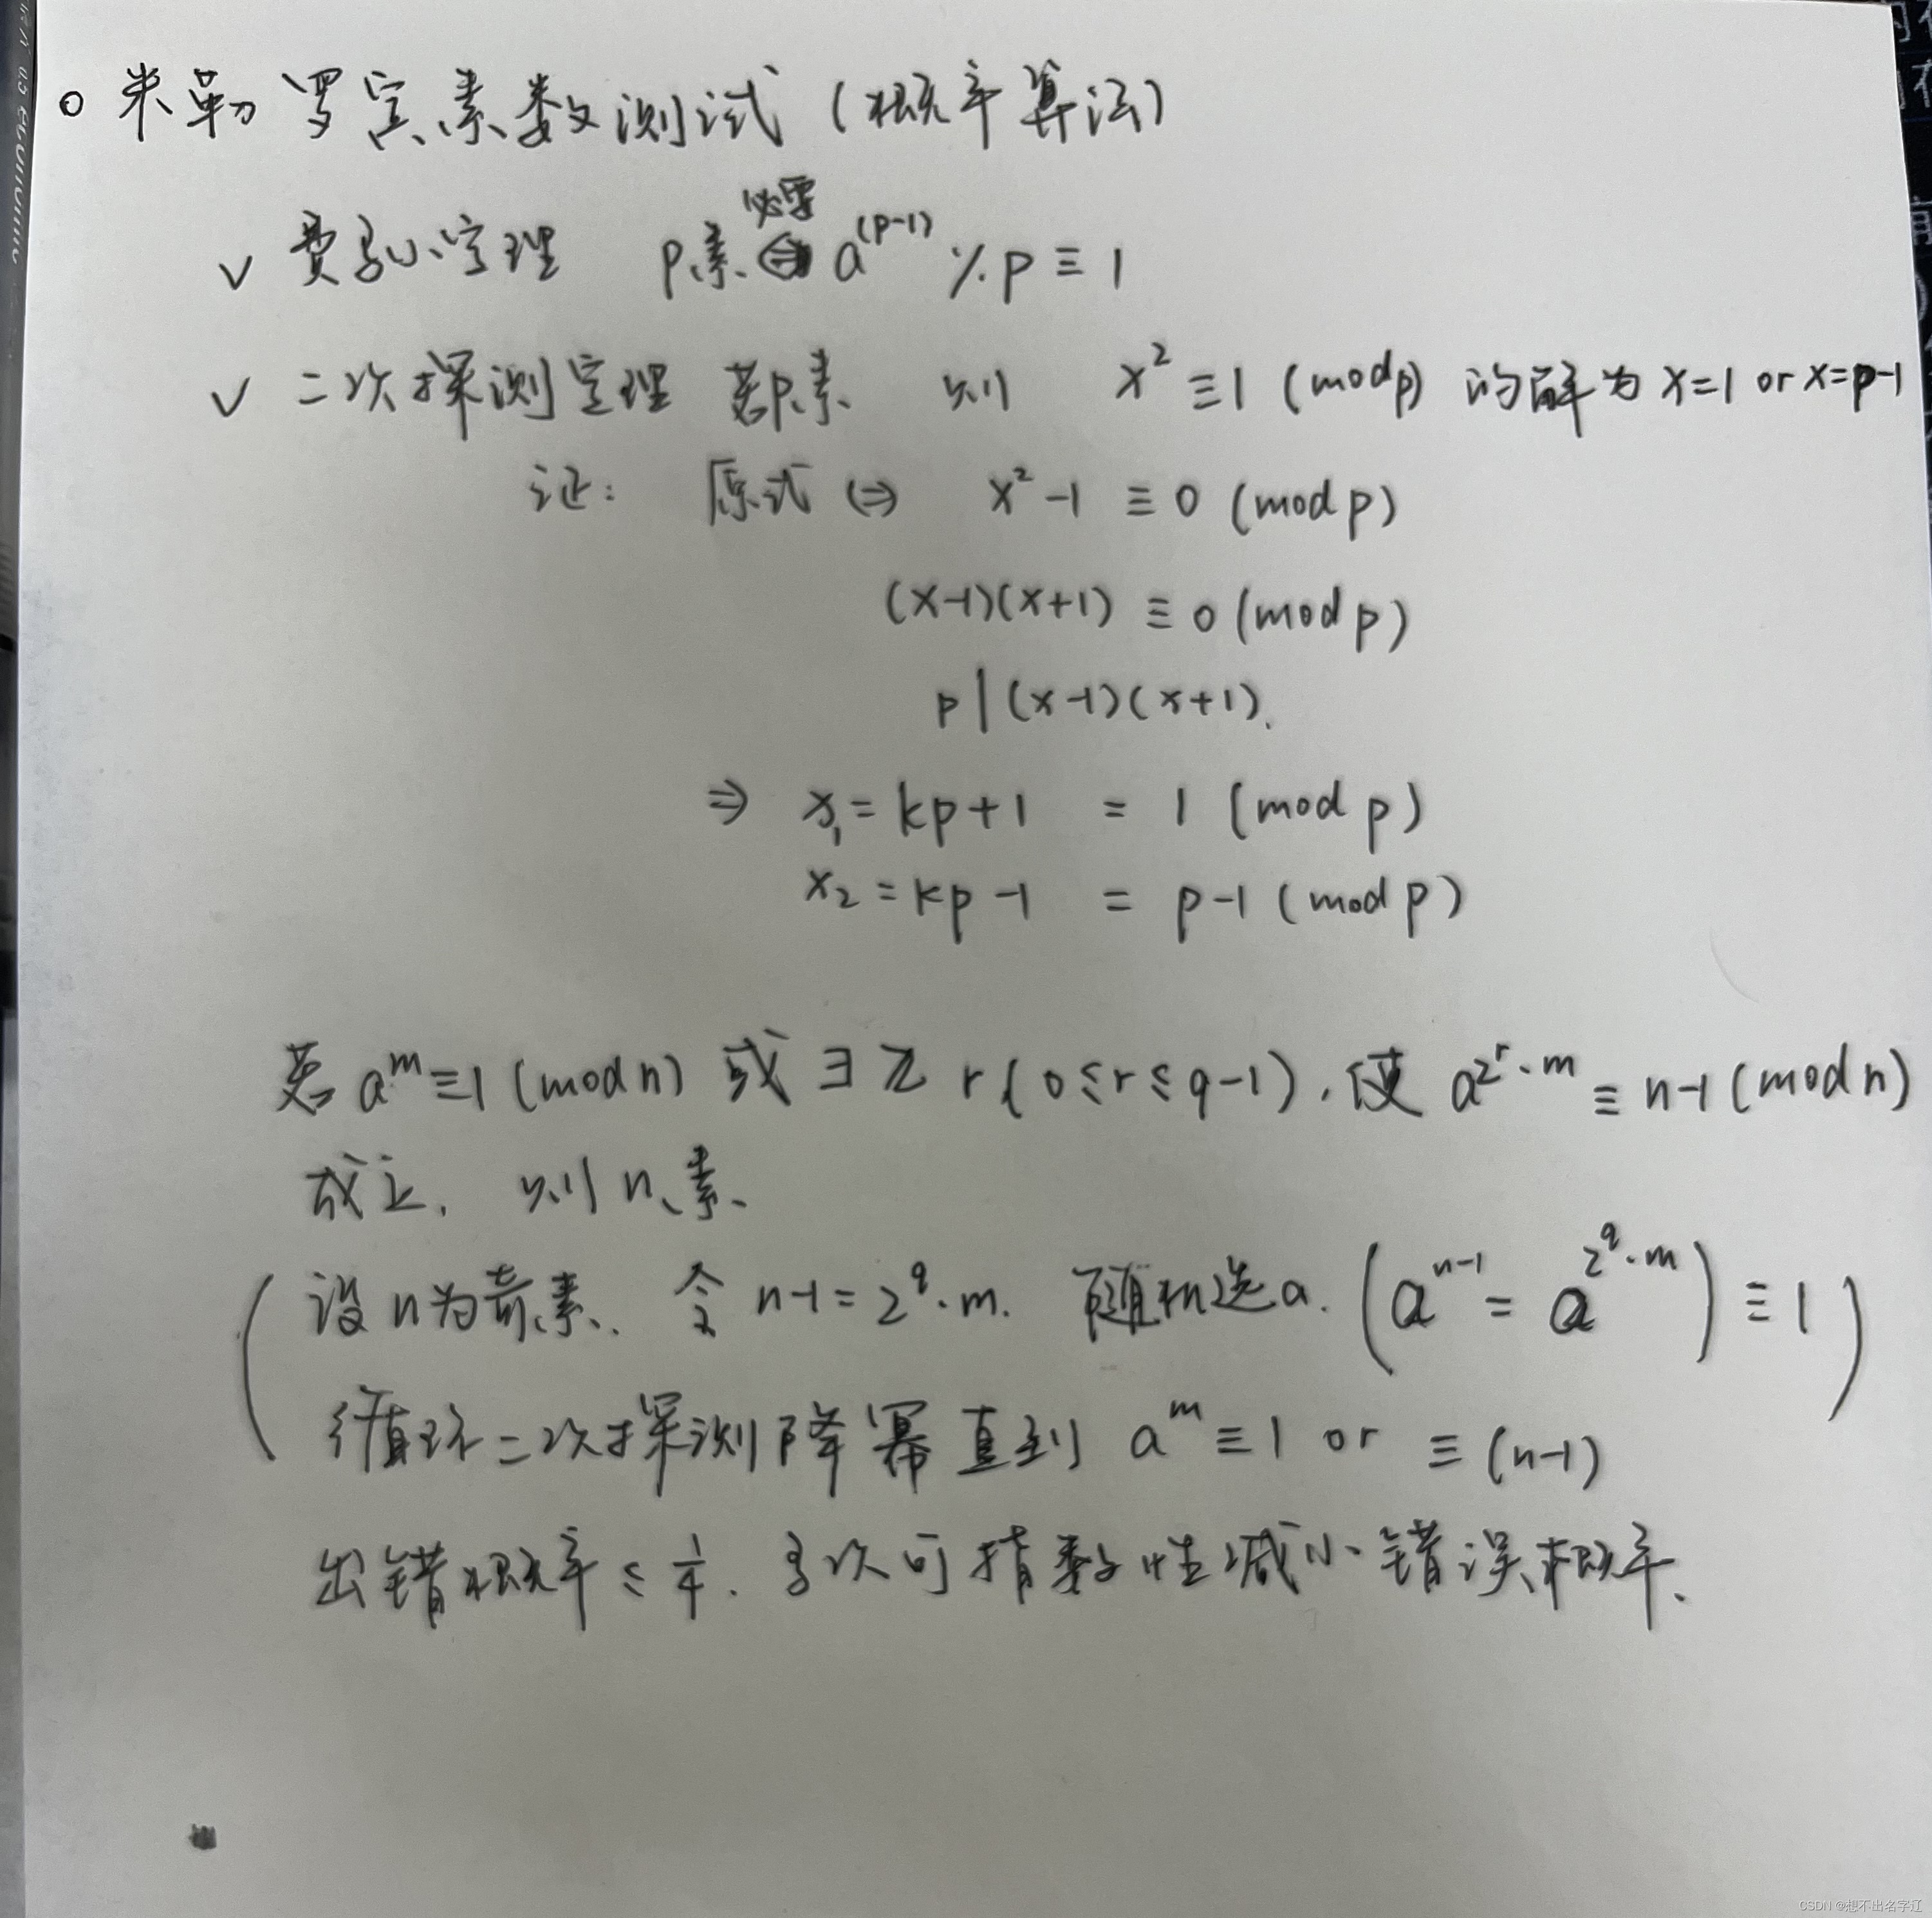 ○ 米勒罗宾素数测试(概率算法)
必要
√ 费马小定理 p素 ⇔ a^(p-1) % p ≡ 1
√ 二次探测定理 若p素 则 x² ≡ 1 (mod p) 的解为 x=1 or x=p-1
证: 原式 ⇔ x²-1 ≡ 0 (mod p)
(x-1)(x+1) ≡ 0 (mod p)
p | (x-1)(x+1).
⇒ x₁ = kp+1 = 1 (mod p)
x₂ = kp-1 = p-1 (mod p)
若 a^m ≡ 1 (mod n) 或 ∃ Z r (0≤r≤q-1), 使 a^(2^r·m) ≡ n-1 (mod n)
成立, 则 n 素.
(设 n 为奇素. 令 n-1 = 2^q·m. 随机选a. (a^(n-1) = a^(2^q·m)) ≡ 1)
循环二次探测降幂直到 a^m ≡ 1 or ≡ (n-1)
出错概率 ≤ 1/4. 多次可指数性减小错误概率.
CSDN @想不出名字辽